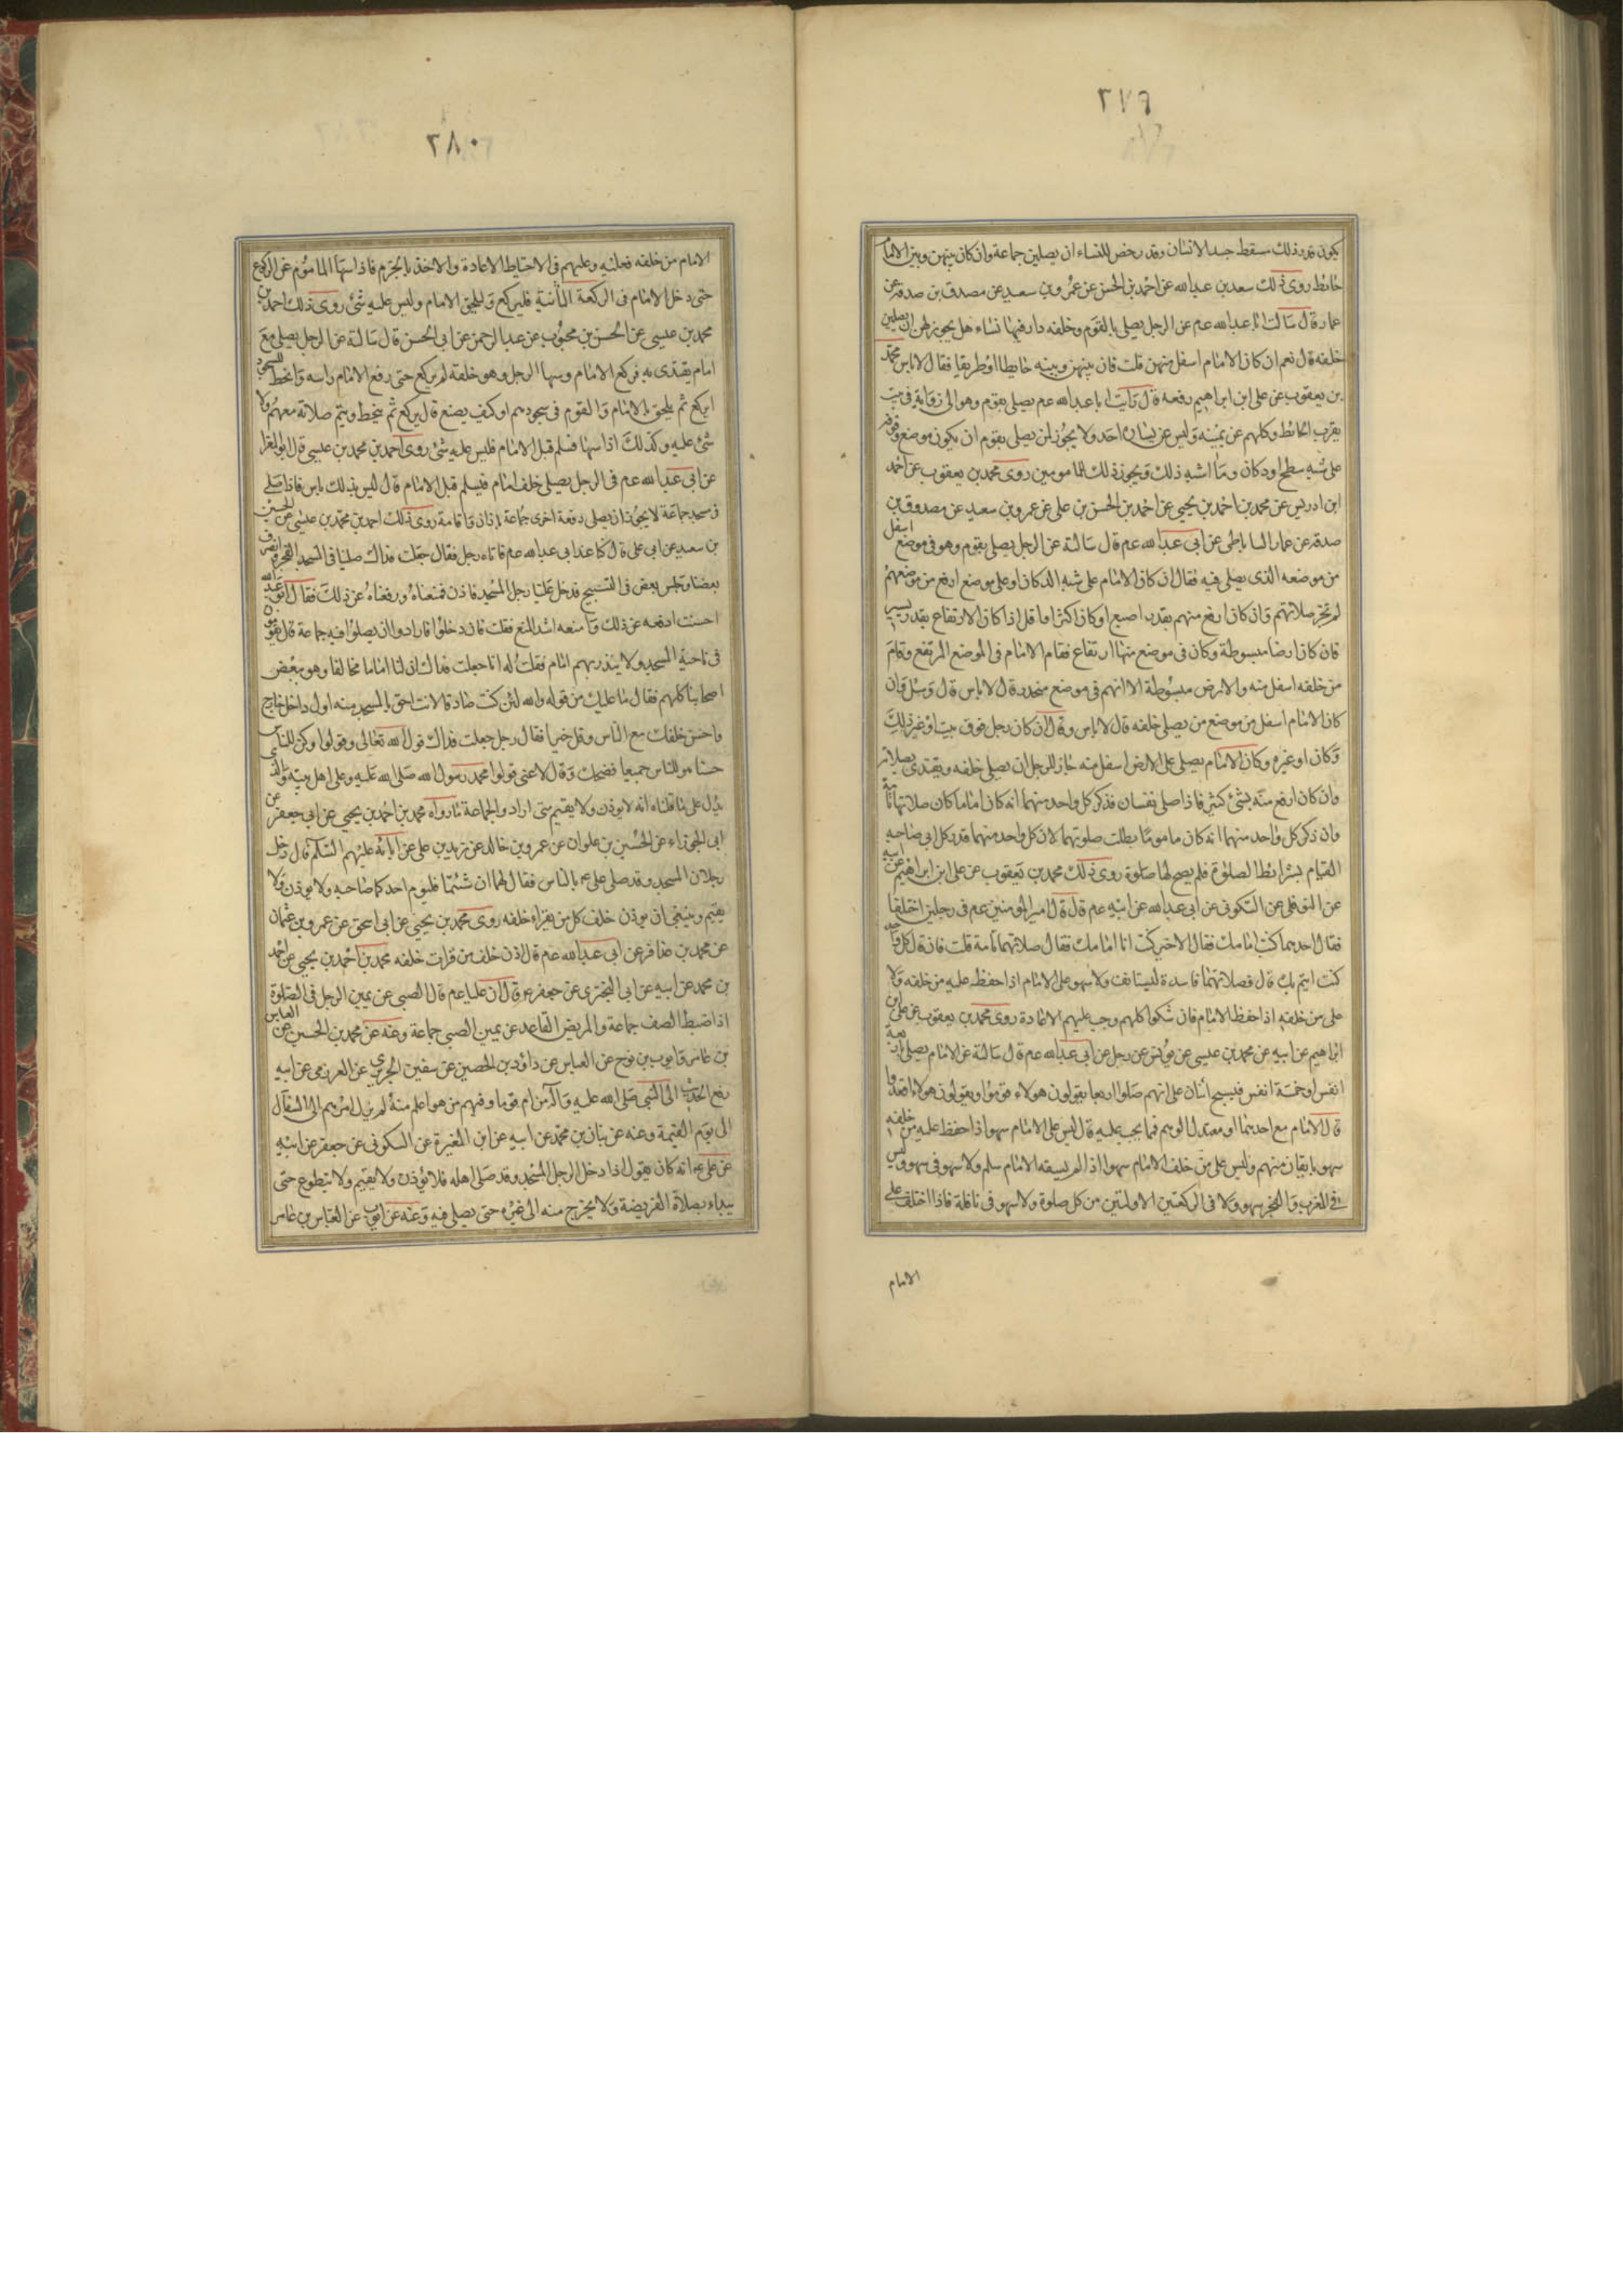 ٢٧٩
يكون قدر ذلك سقط جسد الانسان وقد رخص للنساء ان يصلين جماعة وان كان بينهن وبين الامام
حائط روى ذلك سعد بن عبد الله عن احمد بن الحسن عن عمرو بن سعيد عن مصدق بن صدقة عن
عمار قال سالت ابا عبد الله عم عن الرجل يصلى بالقوم وخلفه دار فيها نساء هل يجوز لهن ان يصلين
خلفه قال نعم ان كان الامام اسفل منهن قلت فان بينهن وبينه حايطا او طريقا فقال لا باس محمد
بن يعقوب عن على ابن ابراهيم رفعه قال رايت ابا عبد الله عم يصلى بقوم وهو الى زواية فى بيت
يقرب الحائط وكلهم عن يمينه وليس عن يساره احد ولا يجوز لمن يصلى بقوم ان يكون موضع وقوفه
على شبه سطح او دكان وما اشبه ذلك ويجوز ذلك للمامومين روى محمد بن يعقوب عن احمد
ابن ادريس عن محمد بن احمد بن يحيى عن احمد بن الحسن بن على عن عمرو بن سعيد عن مصدق بن
صدقة عن عمار الساباطى عن ابى عبد الله عم قال سالته عن الرجل يصلى بقوم وهو فى موضع اسفل
من موضعه الذى يصلى فيه فقال ان كان الامام على شبه الدكان او على موضع ارفع من موضعهم
لم تجز صلاتهم وان كان ارفع منهم بقدر اصبع او كان اكثر او اقل اذا كان الارتفاع بقدر يسير
فان كان ارضا مبسوطة وكان فى موضع منها ارتفاع فقام الامام فى الموضع المرتفع وقام
من خلفه اسفل منه والارض مبسوطة الا انهم فى موضع منحدر قال لا باس قال وسئل فان
كان الامام اسفل من موضع من يصلى خلفه قال لا باس وقال ان كان رجل فوق بيت او غير ذلك
دكان او غيره وكان الامام يصلى على الارض اسفل منه جاز للرجل ان يصلى خلفه ويقتدى بصلاته
وان كان ارفع منه بشئ كثير فاذا صلى نفسان فذكر كل واحد منهما انه كان اماما كان صلاتهما تامة
وان ذكر كل واحد منهما انه كان ماموما بطلت صلوتهما لان كل واحد منهما قد وكل الى صاحبه
القيام بشرائط الصلوة فلم يصح لها صلوة روى ذلك محمد بن يعقوب عن على ابن ابراهيم عن ابيه
عن النوفلى عن السكونى عن ابى عبد الله عن ابيه عم قال قال امير المومنين عم فى رجلين اختلفا
فقال احدهما كنت امامك فقال الاخر كنت انا امامك فقال صلاتهما تامة قلت فان قال كل واحد
كنت ايتم بك قال فصلاتهما فاسدة ليستانف ولا سهو على الامام اذا حفظ عليه من خلفه ولا
على من خلفه اذا حفظ الامام فان شكوا كلهم وجب عليهم الاعادة روى محمد بن يعقوب عن على ابن
ابراهيم عن ابيه عن محمد بن عيسى عن يونس عن رجل عن ابى عبد الله عم قال سالته عن الامام يصلى باربعة
انفس او خمسة انفس فيسبح اثنان على انهم صلوا اربعا يقولون هولاء قوموا ويقولون هولاء اقعدوا
قال الامام مع احدهما او معتدل الوهم فما يجب عليه قال ليس على الامام سهو اذا حفظ عليه من خلفه
سهوه بايقان منهم وليس على من خلف الامام سهو اذا لم يسهه الامام سلم ولا سهو فى سهو وليس
فى المغرب والفجر سهو ولا فى الركعتين الاولتين من كل صلوة ولا سهو فى نافلة فاذا اختلف على
الامام
٢٨٠
الامام من خلفه فعليه وعليهم فى الاحتياط الاعادة والاخذ بالجزم فاذا سها الماموم عن الركوع
حتى دخل الامام فى الركعة الثانية فليركع وليلحق الامام وليس عليه شئ روى ذلك احمد بن
محمد بن عيسى عن الحسن بن محبوب عن عبد الرحمن عن ابى الحسن قال سالته عن الرجل يصلى مع
امام يقتدى به فركع الامام وسها الرجل وهو خلفه لم يركع حتى رفع الامام راسه وانحط للسجود
ايركع ثم يلحق بالامام والقوم فى سجودهم او كيف يصنع قال يركع ثم ينحط ويتم صلاته معهم ولا
شئ عليه وكذلك اذا سها فسلم قبل الامام فليس عليه شئ روى احمد بن محمد بن عيسى قال ابو المغرا
عن ابى عبد الله عم فى الرجل يصلى خلف امام فيسلم قبل الامام قال ليس بذلك باس فاذا صلى
فى مسجد جماعة لا يجوز ان يصلى دفعة اخرى جماعة باذان واقامة روى ذلك احمد بن محمد بن عيسى عن الحسين
بن سعيد عن ابى على قال كنا عند ابى عبد الله عم فاتاه رجل فقال جعلت فداك صلينا فى المسجد الفجر وانصرف
بعضنا وجلس بعض فى التسبيح فدخل علينا رجل المسجد فاذن فمنعناه ورفعناه عن ذلك فقال ابو عبد الله
احسنت ادفعه عن ذلك وامنعه اشد المنع فقلت فان دخلوا فارادوا ان يصلوا فيه جماعة قال يقومون
فى ناحية المسجد ولا يبدر بهم امام فقلت له انا جعلت فداك ان لنا اماما مخالفا وهو يبغض
اصحابنا كلهم فقال ما عليك من قوله والله لئن كنت صادقا لانت احق بالمسجد منه اول داخل خارج
واحسن خلقك مع الناس وقل خيرا فقال رجل جعلت فداك قول الله تعالى وقولوا للناس
حسنا هو للناس جميعا فضحك وقال لا عنى قولوا محمد رسول الله صلى الله عليه وعلى اهل بيته والذى
يدل على ما قلناه انه لا يوذن ولا يقيم متى اراد والجماعة ما رواه محمد بن احمد بن يحيى عن ابى جعفر عن
ابى الجوزاء عن الحسين بن علوان عن عمرو بن خالد عن زيد بن على عن ابائه عليهم السلم قال دخل
رجلان المسجد وقد صلى على عم بالناس فقال لهما ان شئتما فليوم احدكما صاحبه ولا يوذن ولا
يقيم وينبغى ان يوذن خلف كل من يقراء خلفه روى محمد بن يحيى عن ابى اسحق عن عمرو بن عثمان
عن محمد بن عذافر عن ابى عبد الله عم قال اذن خلف من قرات خلفه محمد بن احمد بن يحيى عن احمد
بن محمد عن ابيه عن ابى البخترى عن جعفر عم قال ان عليا عم قال الصبى عن يمين الرجل فى الصلوة
اذا ضبط الصف جماعة والمريض القاعد عن يمين الصبى جماعة وعنه عن محمد بن الحسين عن العباس
بن عامر وايوب بن نوح عن العباس عن داود بن الحصين عن سفين الجريرى عن العرزمى عن ابيه
رفع الحديث الى النبى صلى الله عليه وآله من ام قوما وفيهم من هو اعلم منه لم يزل امرهم الى السفال
الى يوم القيمة وعنه عن بنان بن محمد عن ابيه عن ابن المغيرة عن السكونى عن جعفر عن ابيه
عن على عم انه كان يقول اذا دخل الرجل المسجد وقد صلى اهله فلا يؤذن ولا يقيم ولا يتطوع حتى
يبداء بصلاة الفريضة ولا يخرج منه الى غيره حتى يصلى فيه وعنه عن ايوب عن العباس بن عامر